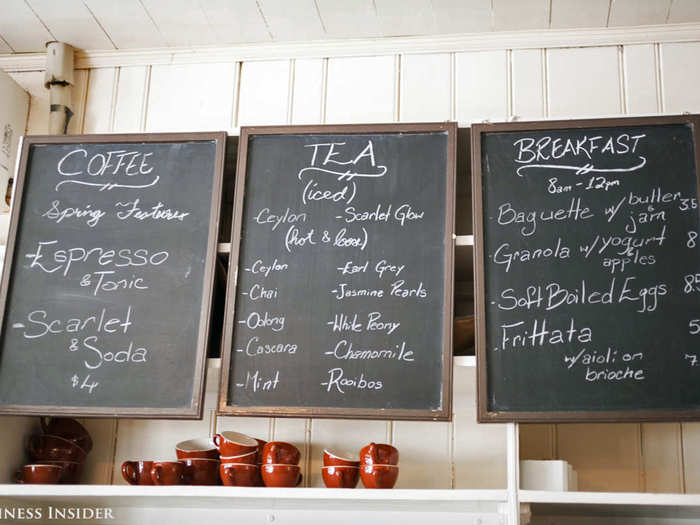 COFFEE
Spring Features
-Espresso
& Tonic
-Scarlet
& Soda
$4
TEA
(iced)
-Ceylon -Scarlet Glow
(hot & loose)
-Ceylon -Earl Grey
-Chai -Jasmine Pearls
-Oolong -White Peony
-Cascara -Chamomile
-Mint -Rooibos
BREAKFAST
8am-12pm
-Baguette w/ butter 3.5
jam
-Granola w/ yogurt 8
apples
-Soft Boiled Eggs 8.5
-Frittata 5
w/ aioli on 7
brioche
INESS INSIDER